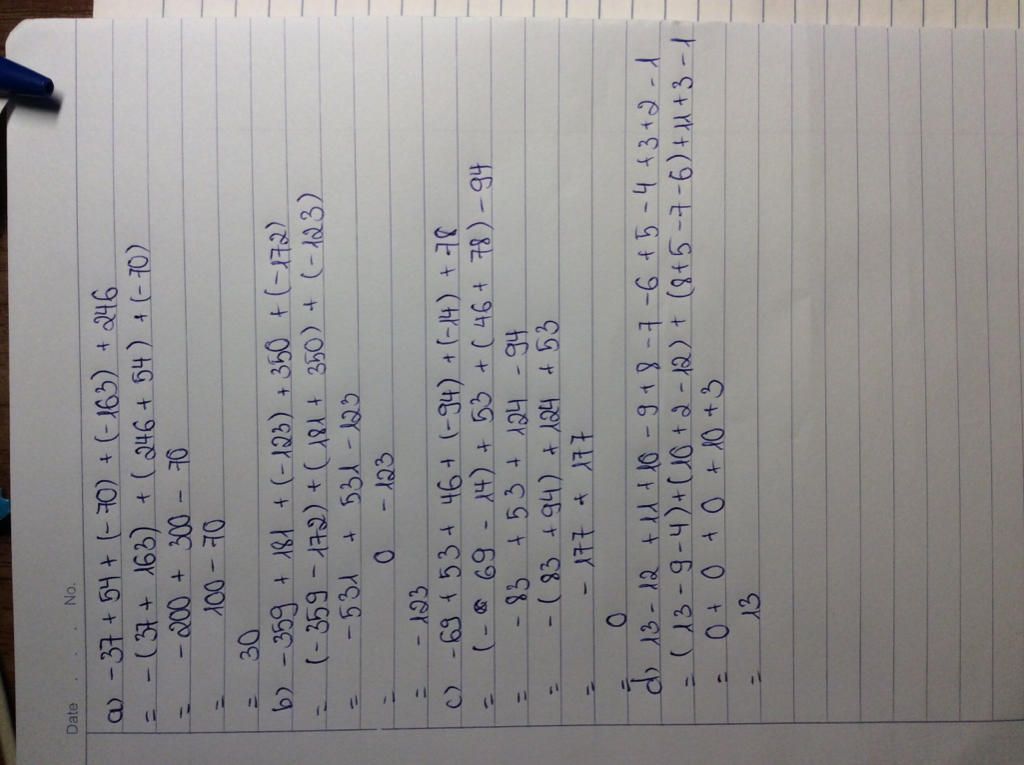 Date . . . No.
a) -37 + 54 + (-70) + (-163) + 246
= - (37 + 163) + (246 + 54) + (-70)
= -200 + 300 - 70
= 100 - 70
= 30
b) -359 + 181 + (-123) + 350 + (-172)
= (-359 - 172) + (181 + 350) + (-123)
= -531 + 531 - 123
= 0 - 123
= -123
c) -69 + 53 + 46 + (-94) + (-14) + 78
= (- 69 - 14) + 53 + (46 + 78) - 94
= - 83 + 53 + 124 - 94
= - (83 + 94) + 124 + 53
= - 177 + 177
= 0
d) 13 - 12 + 11 + 10 - 9 + 8 - 7 - 6 + 5 - 4 + 3 + 2 - 1
= (13 - 9 - 4) + (10 + 2 - 12) + (8 + 5 - 7 - 6) + 11 + 3 - 1
= 0 + 0 + 0 + 10 + 3
= 13